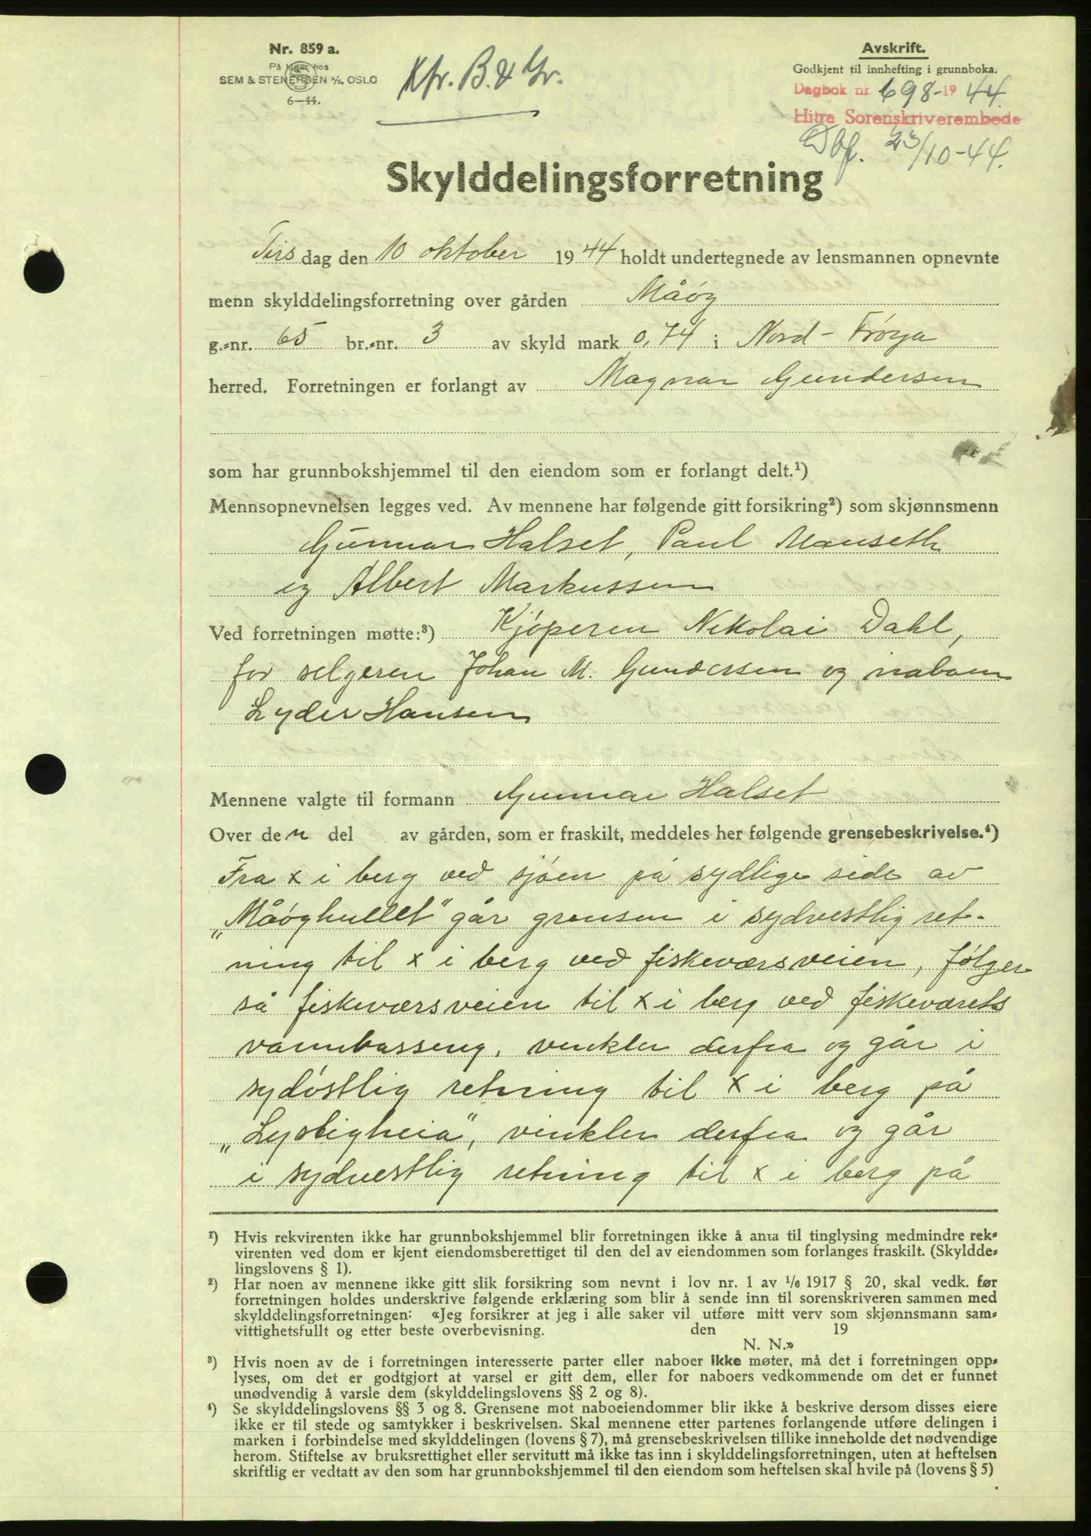 Nr. 859 a.
På lager hos
SEM & STENERSEN A/S. OSLO
6—44.
Kfr. B. & Gr.
Avskrift.
Godkjent til innhefting i grunnboka.
Dagbok nr 698-1944.
Hitra Sorenskriverembede
Dbf. 23/10-44.
Skylddelingsforretning
Tirsdag den 10 oktober 1944 holdt undertegnede av lensmannen opnevnte
menn skylddelingsforretning over gården Måøy
g.=nr. 65 br.=nr. 3 av skyld mark 0,74 i Nord-Frøya
herred. Forretningen er forlangt av Magnar Gundersen
som har grunnbokshjemmel til den eiendom som er forlangt delt.¹)
Mennsopnevnelsen legges ved. Av mennene har følgende gitt forsikring²) som skjønnsmenn
Gunnar Halset, Paul Mauseth
og Albert Markussen
Ved forretningen møtte:³) Kjøperen Nikolai Dahl,
for selgeren Johan M. Gundersen og naboen
Lyder Hansen
Mennene valgte til formann Gunnar Halset
Over den del av gården, som er fraskilt, meddeles her følgende grensebeskrivelse.⁴)
Fra x i berg ved sjøen på sydlige side av
„Måøyhullet" går grensen i sydvestlig ret-
ning til x i berg ved fiskeværsveien, følger
så fiskeværsveien til x i berg ved fiskeværets
vannbasseng, vinkler derfra og går i
sydøstlig retning til x i berg på
„Lystigheia", vinkler derfra og går
i sydvestlig retning til x i berg på
¹) Hvis rekvirenten ikke har grunnbokshjemmel blir forretningen ikke å anta til tinglysing medmindre rek=
virenten ved dom er kjent eiendomsberettiget til den del av eiendommen som forlanges fraskilt. (Skyldde=
lingslovens § 1).
²) Har noen av mennene ikke gitt slik forsikring som nevnt i lov nr. 1 av 1/6 1917 § 20, skal vedk. før
forretningen holdes underskrive følgende erklæring som blir å sende inn til sorenskriveren sammen med
skylddelingsforretningen: «Jeg forsikrer at jeg i alle saker vil utføre mitt verv som skjønnsmann sam=
vittighetsfullt og etter beste overbevisning. den 19
N. N.»
³) Hvis noen av de i forretningen interesserte parter eller naboer ikke møter, må det i forretningen opp=
lyses, om det er godtgjort at varsel er gitt dem, eller for naboers vedkommende om det er funnet
unødvendig å varsle dem (skylddelingslovens §§ 2 og 8).
⁴) Se skylddelingslovens §§ 3 og 8. Grensene mot naboeiendommer blir ikke å beskrive dersom disses eiere
ikke er til stede og samtykker i beskrivelsen. Skal mennene etter partenes forlangende utføre delingen i
marken i forbindelse med skylddelingen (lovens § 7), må grensebeskrivelsen tillike inneholde det nødvendige
herom. Stiftelse av bruksrettighet eller servitutt må ikke tas inn i skylddelingsforretningen, uten at heftelsen
skriftlig er vedtatt av den som har grunnbokshjemmel til den eiendom som heftelsen skal hvile på (lovens § 5)